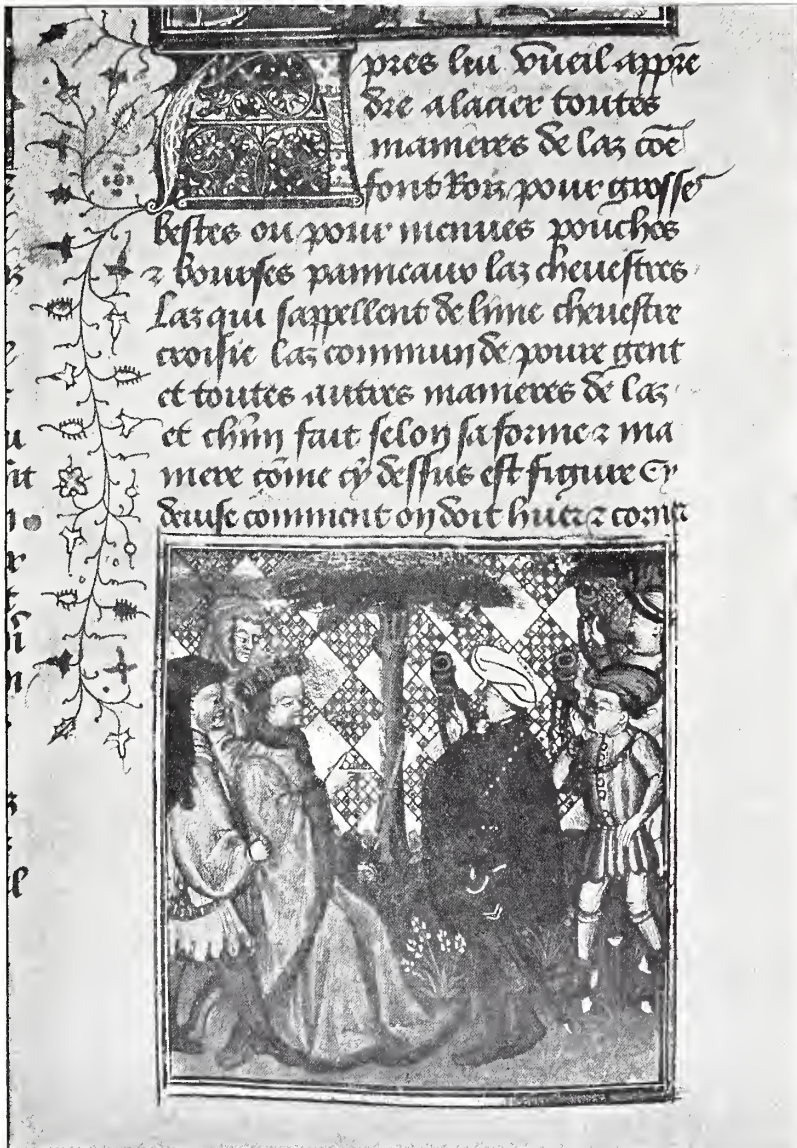 Apres lui vueil apprē
dre a lacier toutes
manieres de laz cōe
font Roiz pour grosse
bestes ou pour menues pouches
⁊ bourses panneaux laz cheuestres
Laz qui sappellent de lime cheuestre
croisie laz commun de poure gent
et toutes autres manieres de laz
et chūn fait selon sa forme ⁊ ma
niere cōme cy dessus est figure Cy
deuise comment on doit huer ⁊ corner